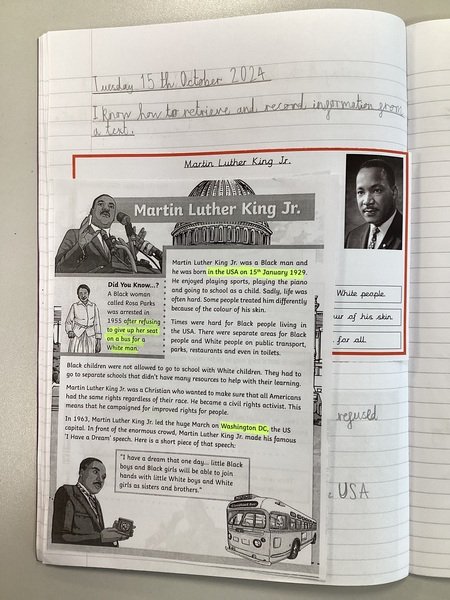 Tuesday 15th October 2024
I know how to retrieve and record information from
a text.
Martin Luther King Jr.
Martin Luther King Jr.
Martin Luther King Jr. was a Black man and
he was born in the USA on 15th January 1929.
He enjoyed playing sports, playing the piano
and going to school as a child. Sadly, life was
often hard. Some people treated him differently
because of the colour of his skin.
Times were hard for Black people living in
the USA. There were separate areas for Black
people and White people on public transport,
parks, restaurants and even in toilets.
Did You Know...?
A Black woman
called Rosa Parks
was arrested in
1955 after refusing
to give up her seat
on a bus for a
White man.
Black children were not allowed to go to school with White children. They had to
go to separate schools that didn't have many resources to help with their learning.
Martin Luther King Jr. was a Christian who wanted to make sure that all Americans
had the same rights regardless of their race. He became a civil rights activist. This
means that he campaigned for improved rights for people.
In 1963, Martin Luther King Jr. led the huge March on Washington DC, the US
capital. In front of the enormous crowd, Martin Luther King Jr. made his famous
'I Have a Dream' speech. Here is a short piece of that speech:
"I have a dream that one day... little Black
boys and Black girls will be able to join
hands with little White boys and White
girls as sisters and brothers."
White people
of his skin
for all
refused
USA